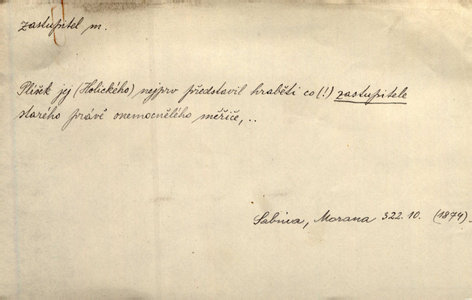 zastupitel m.
Plíšek jej (Holického) nejprv představil hraběti co(!) zastupitele
starého právě onemocnělého měřiče, ..
Sabina, Morana 322.10. (1874)